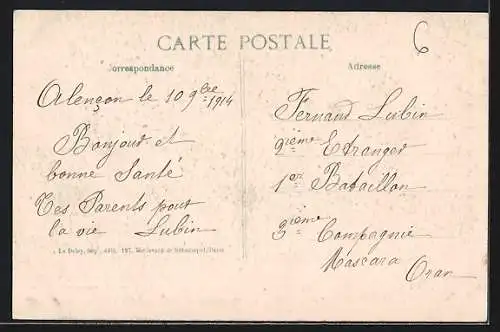 CARTE POSTALE
6
Correspondance
Alençon le 10 9bre 1914
Bonjour et
bonne Santé
Tes Parents pour
la vie Lubin
Adresse
Fernand Lubin
2ième Etranger
1er Bataillon
3ième Compagnie
Mascara Oran
Le Deley, imp., édit., 127, Boulevard de Sébastopol, Paris